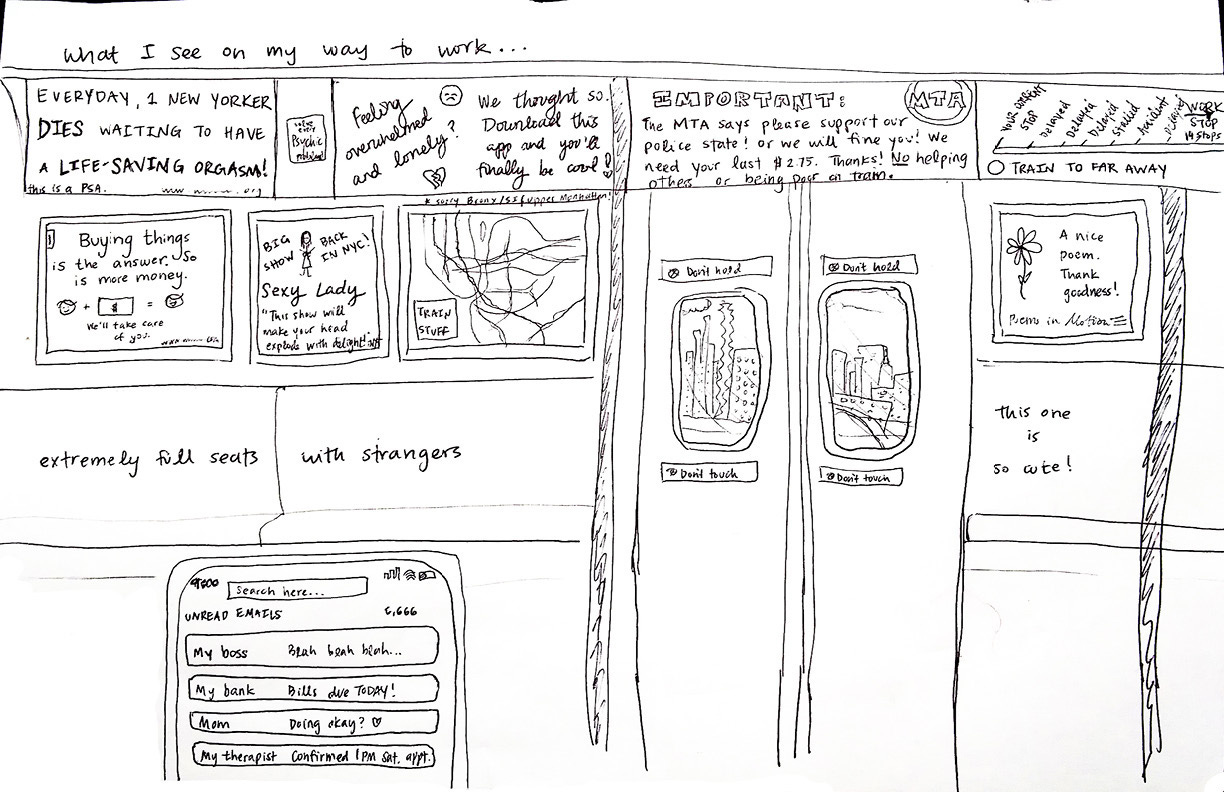 what I see on my way to work...
EVERYDAY, 1 NEW YORKER
DIES WAITING TO HAVE
A LIFE-SAVING ORGASM!
this is a PSA.
.org
Psychic
Feeling
overwhelmed
and lonely?
We thought so.
Download this
app and you'll
finally be cool!
* sorry Bronx/SI/upper Manhattan!
IMPORTANT:
MTA
The MTA says please support our
police state! or we will fine you! We
need your last $2.75. Thanks! No helping
others or being poor on train.
YOUR CURRENT
STOP
Delayed
Delayed
Delayed
Stalled
Accident
Delayed
WORK
STOP
14 STOPS
TRAIN TO FAR AWAY
Buying things
is the answer. So
is more money.
+ $ =
We'll take care
of you.
BIG
SHOW
BACK
IN NYC!
Sexy Lady
"This show will
make your head
explode with delight!"
TRAIN
STUFF
Don't hold
Don't hold
Don't touch
Don't touch
A nice
poem.
Thank
goodness!
Poems in Motion
extremely full seats
with strangers
this one
is
so cute!
Search here...
UNREAD EMAILS
6,666
My boss Blah blah blah...
My bank Bills due TODAY!
Mom Doing okay? ♡
My therapist Confirmed 1PM Sat. appt.